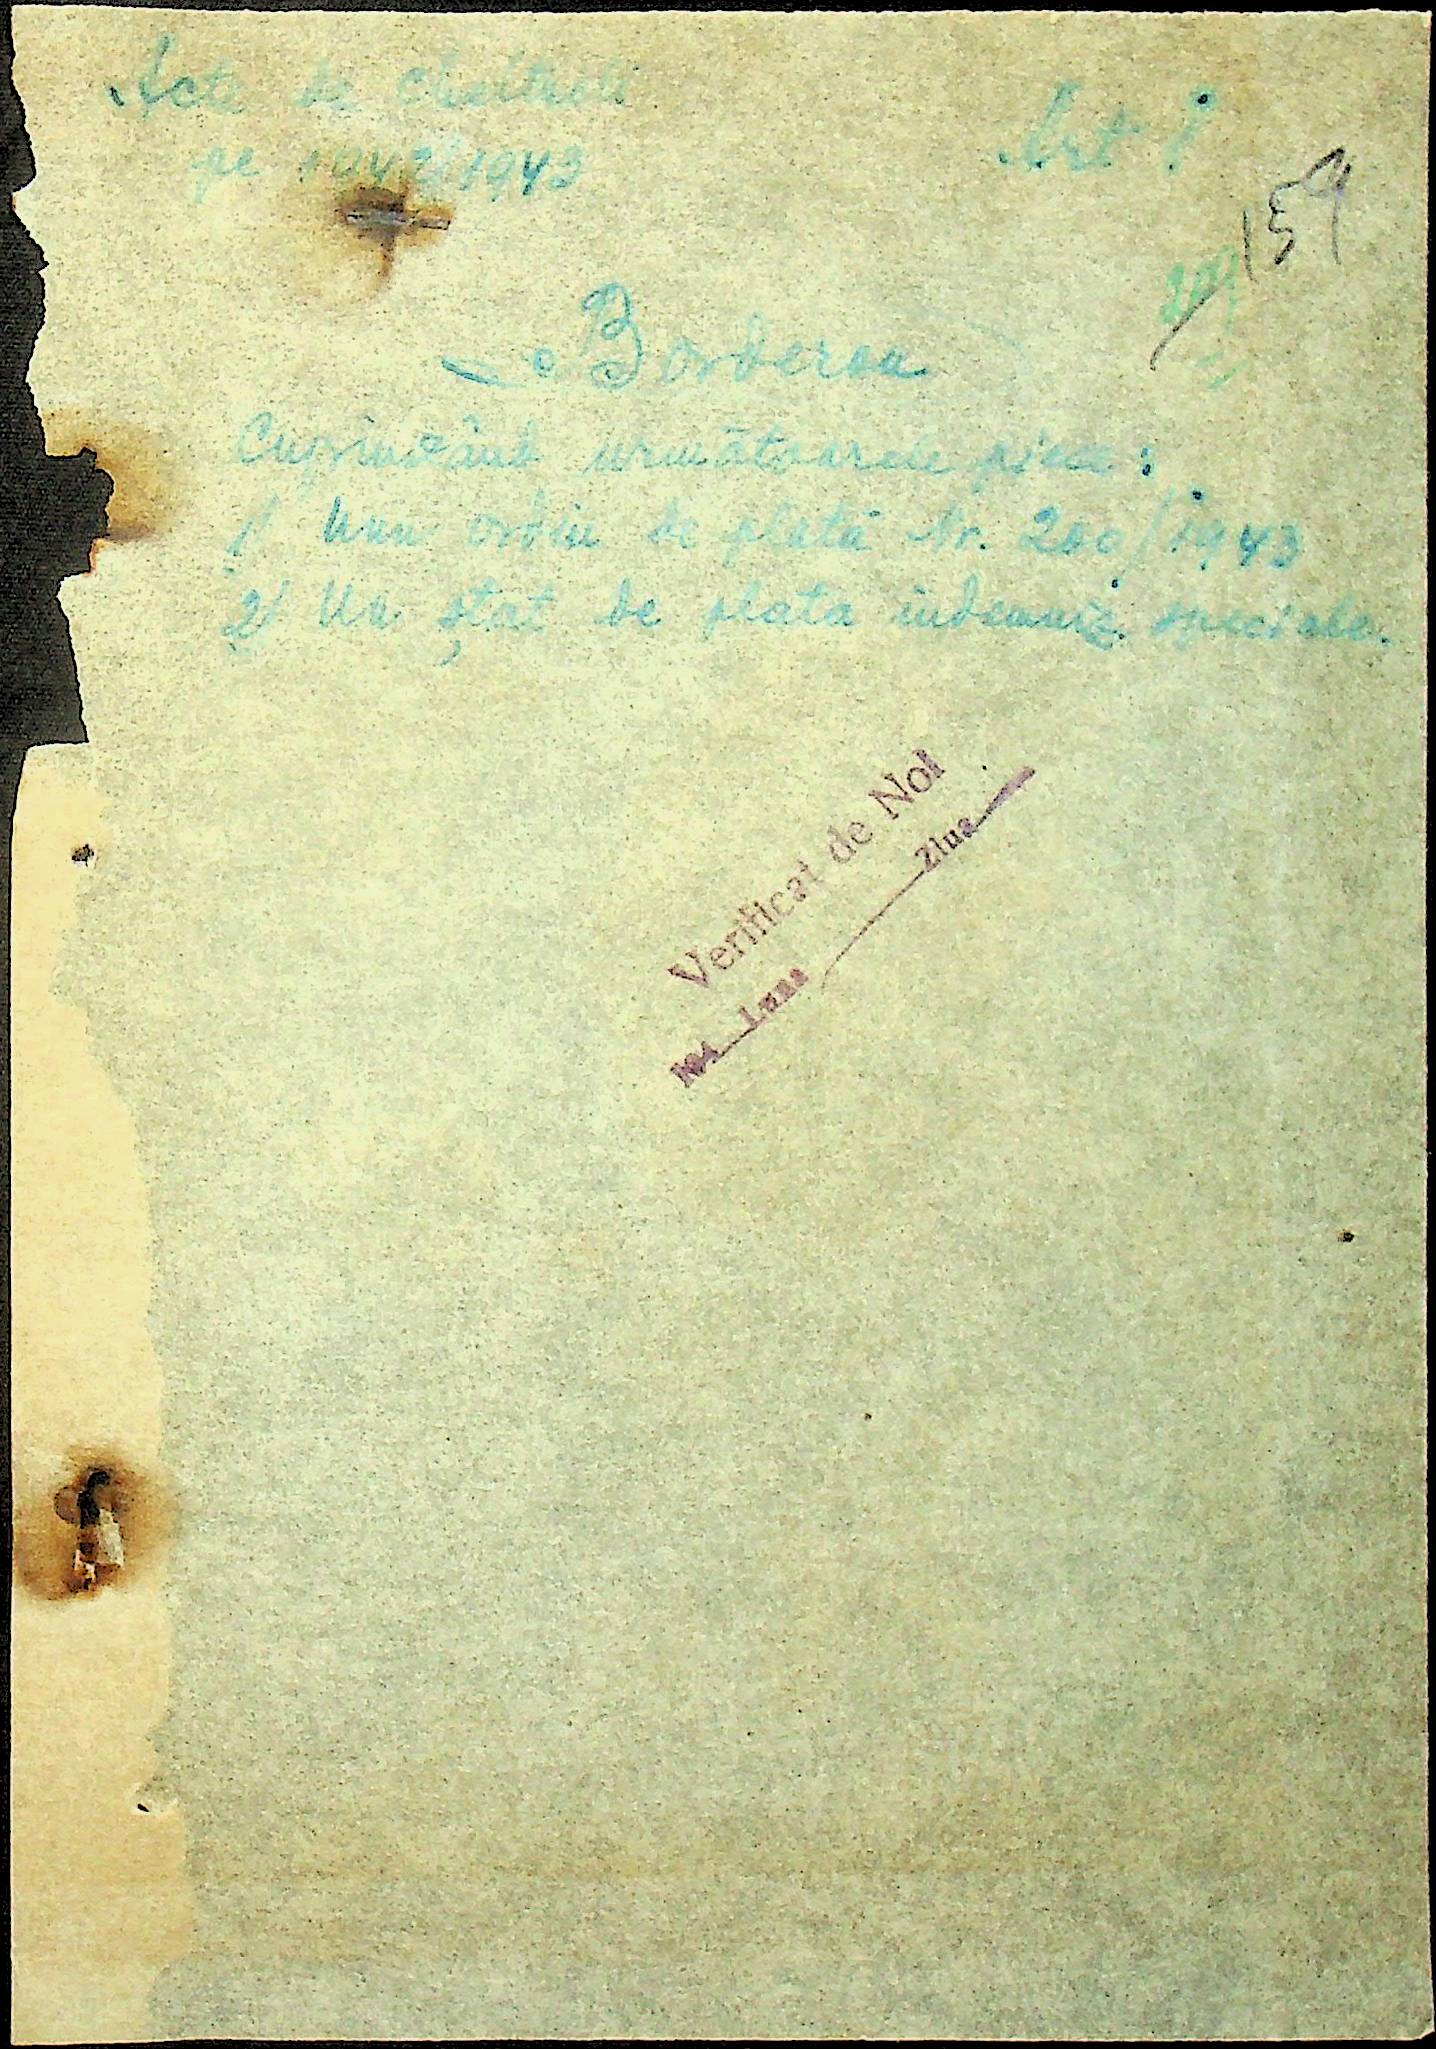 Acte de cheltueli
pe 1942/1943
Art 8
159
Borderou
Cuprinzând următoarele piese:
1/ Unu ordin de plată Nr. 200/1943
2/ Un ștat de plata indemniz. speciale.
Verificat de Noi
194 Luna Ziua